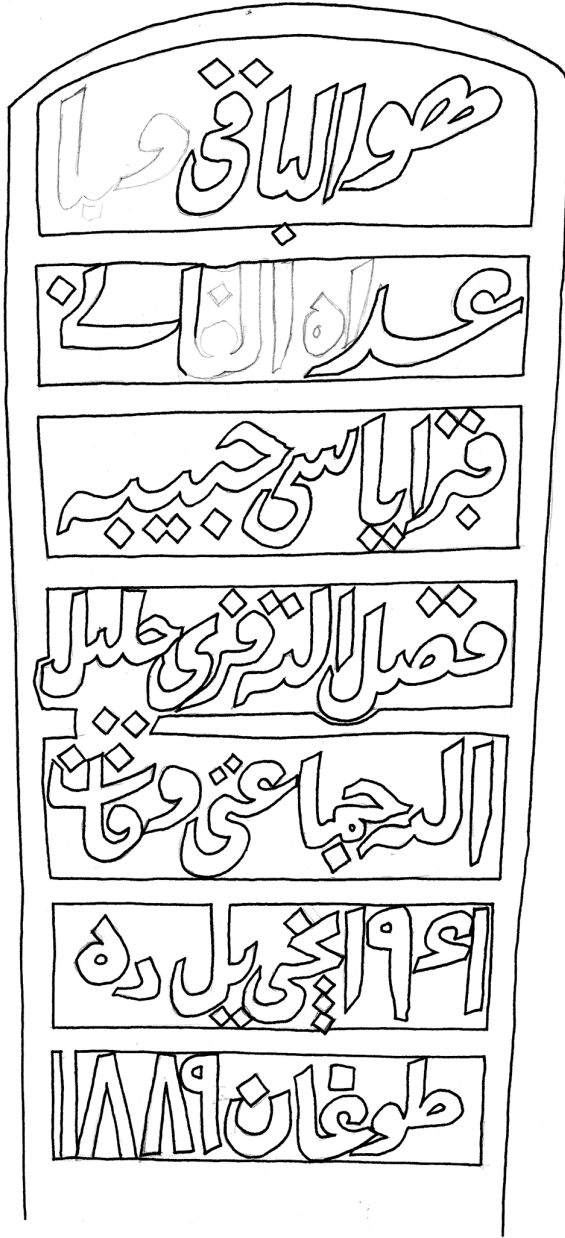 هوالباقى وبا
عداه الفانے
قبر اياسى حبيبه
فضل الله قزى خليل
الله جماعتى وفات
١٩٤١ نچى يل ده
طوغان ١٨٨٩